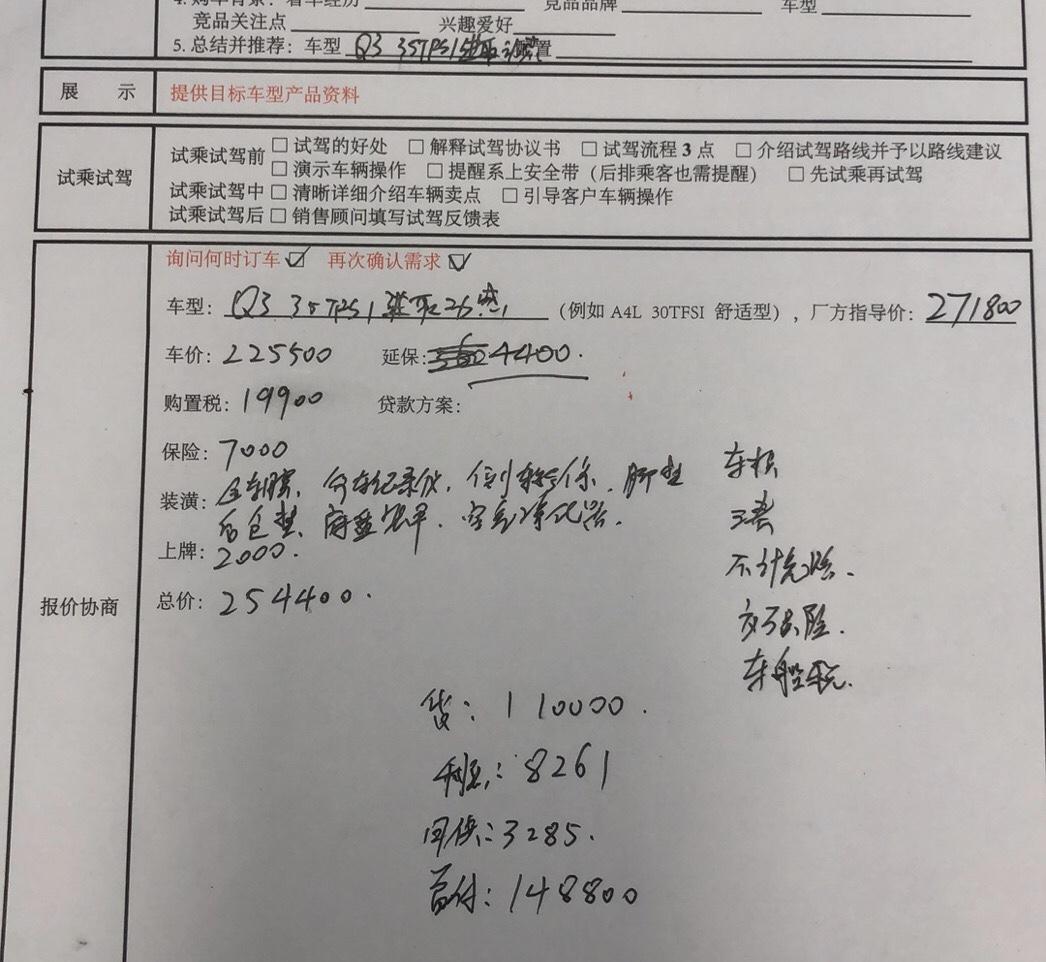 4. 购车背景：看车经历 竞品品牌 车型
竞品关注点 兴趣爱好
5. 总结并推荐：车型 Q3 35TFSI 进取 置
展 示 提供目标车型产品资料
试乘试驾
试乘试驾前 □ 试驾的好处 □ 解释试驾协议书 □ 试驾流程 3 点 □ 介绍试驾路线并予以路线建议
□ 演示车辆操作 □ 提醒系上安全带（后排乘客也需提醒） □ 先试乘再试驾
试乘试驾中 □ 清晰详细介绍车辆卖点 □ 引导客户车辆操作
试乘试驾后 □ 销售顾问填写试驾反馈表
询问何时订车 ☑ 再次确认需求 ☑
车型：Q3 35TFSI 进取动感 （例如 A4L 30TFSI 舒适型），厂方指导价：271800
车价：225500 延保：4400.
购置税：19900 贷款方案：
保险：7000
装潢：全车膜、行车记录仪. 脚垫
后仓垫、空气净化器.
上牌：2000.
报价协商
总价：254400.
车损
三责
不计免险.
车船税.
贷：110000.
利息：8261
月供：3285.
首付：148800